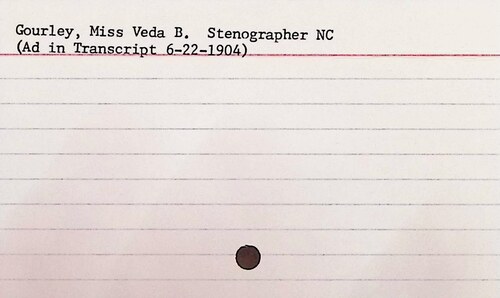 Gourley, Miss Veda B.  Stenographer NC
(Ad in Transcript 6-22-1904)